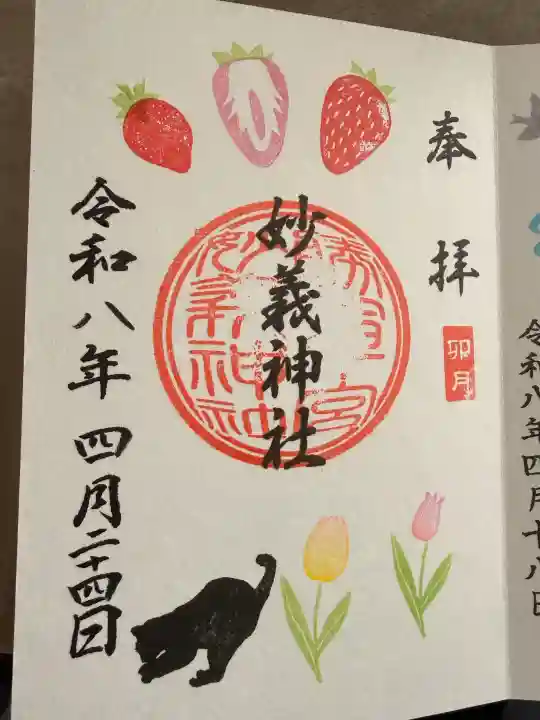 奉拝
卯月
妙義神社
令和八年四月二十四日
令和八年四月十八日